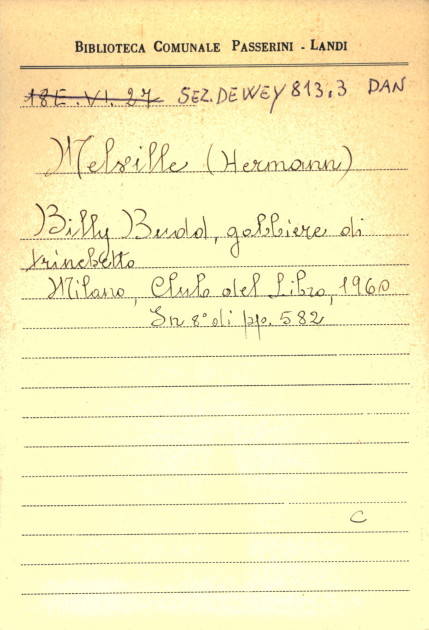 BIBLIOTECA COMUNALE PASSERINI - LANDI
18E. VI. 27 SEZ. DEWEY 813.3 DAN
Melville (Hermann)
Billy Budd, gabbiere di
trinchetto
Milano, Club del Libro, 1960
In 8° di pp. 582
C